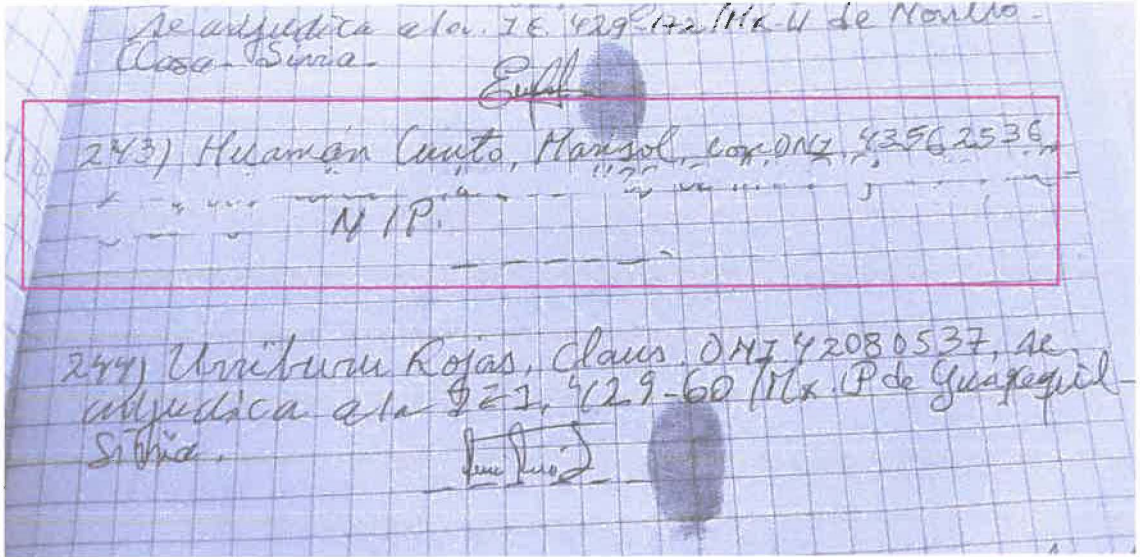 se adjudica a la. IE. 429-172/Mx-U de
(Casa- Sivia.
243) Huamán Cunto, Marisol, con DNI, 43562536
N/P.
244) Urriburu Rojas, Claus. DNI 42080537, se
adjudica a la 429-60/Mx. P de Guayaquil
Sivia.